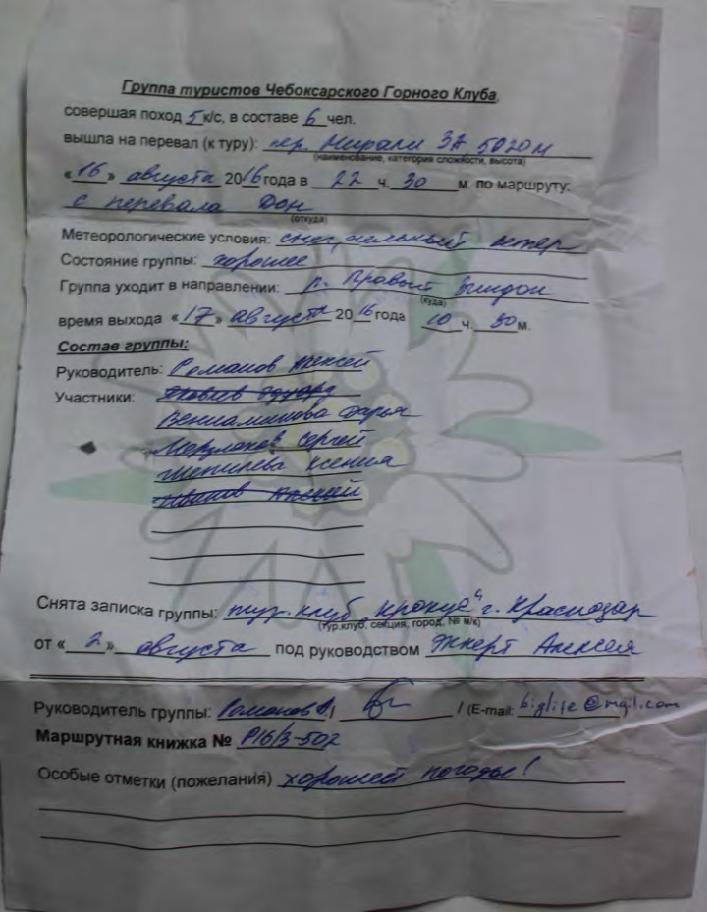 Группа туристов Чебоксарского Горного Клуба,
совершая поход 5 к/с, в составе 6 чел.
вышла на перевал (к туру): пер. Мирали 3А 5020 м
(наименование, категория сложности, высота)
«16» августа 2016 года в 22 ч. 30 м. по маршруту:
с перевала Дон
(откуда)
Метеорологические условия: снег, сильный ветер
Состояние группы: хорошее
Группа уходит в направлении: л. Правый
(куда)
время выхода «17» августа 2016 года 10 ч. 30 м.
Состав группы:
Руководитель: Романов Алексей
Участники:
Вениаминова Дарья
Сергей
Ксения
Иванов Алексей
Снята записка группы: тур. клуб "Крокус" г. Краснодар
(тур.клуб, секция, город, № м/к)
от «2» августа под руководством Эккерт Алексея
Руководитель группы: Романов А. / / (E-mail:
Маршрутная книжка № Р16/3-502
Особые отметки (пожелания) хорошей погоды!